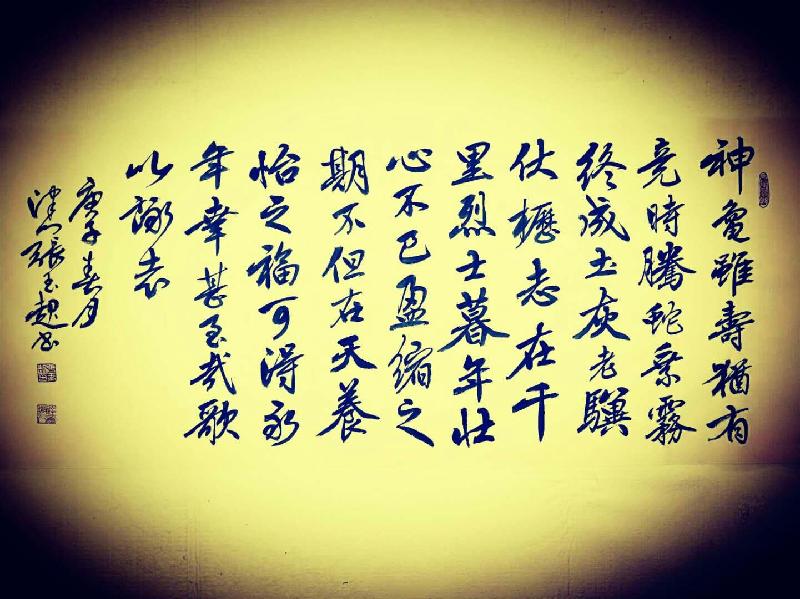 神龜雖壽猶有
竟時騰蛇乘霧
终成土灰老驥
伏櫪志在千
里烈士暮年壮
心不已盈缩之
期不但在天養
怡之福可得永
年幸甚至哉歌
以詠志
庚子春月
津门張玉书